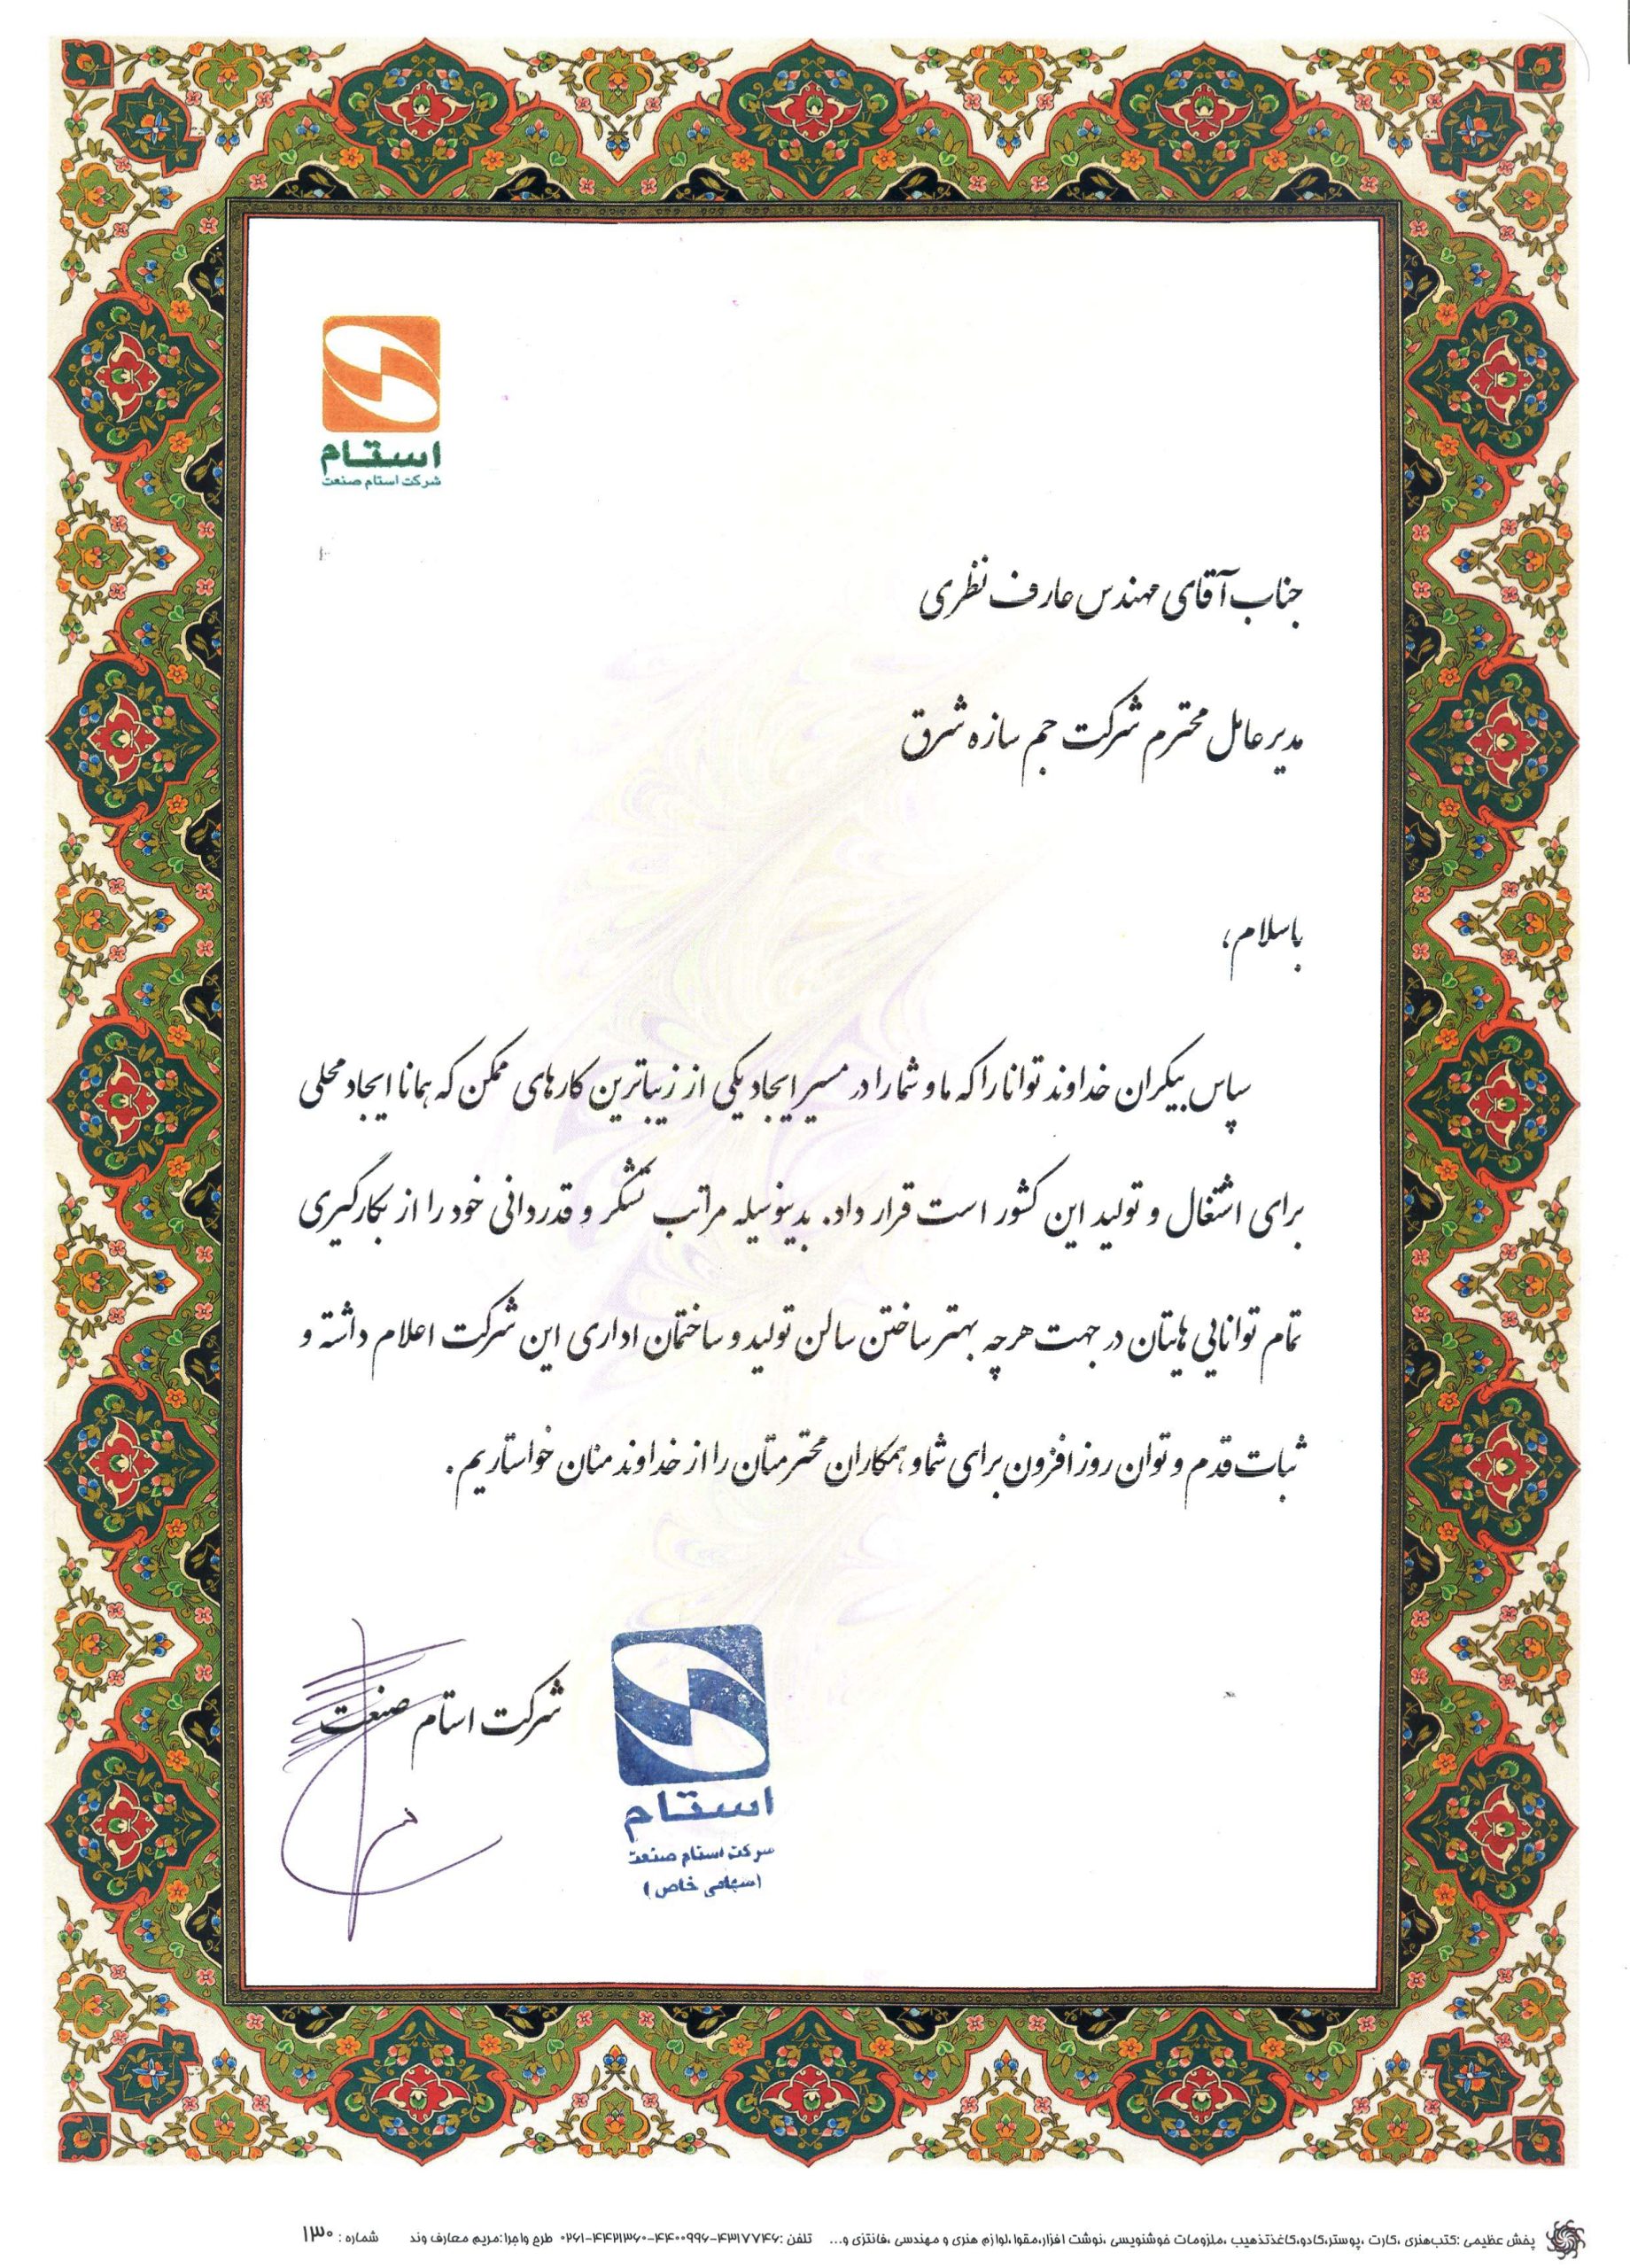 استام
شرکت استام صنعت
جناب آقای مهندس عارف نظری
مدیر عامل محترم شرکت جم سازه شرق
باسلام،
سپاس بیکران خداوند توانا را که ما و شما را در مسیر ایجاد یکی از زیباترین کارهای ممکن که همانا ایجاد محلی
برای اشتغال و تولید این کشور است قرار داد. بدینوسیله مراتب تشکر و قدردانی خود را از بکارگیری
تمام توانایی هایتان در جهت هرچه بهتر ساختن سالن تولید و ساختمان اداری این شرکت اعلام داشته و
ثبات قدم و توان روز افزون برای شما و همکاران محترمتان را از خداوند منان خواستاریم.
شرکت استام صنعت
استام
شرکت استام صنعت
(سهامی خاص)
پخش عظیمی :کتب‌هنری ،کارت ،پوستر،کادو،کاغذتذهیب ،ملزومات خوشنویسی ،نوشت افزار،مقوا،لوازم هنری و مهندسی ،فانتزی و... تلفن :۴۳۱۷۷۴۶-۴۴۰۰۹۹۶-۰۲۶۱-۴۴۲۱۳۶۰ طرح واجرا:مریم معارف وند شماره : ۱۳۰